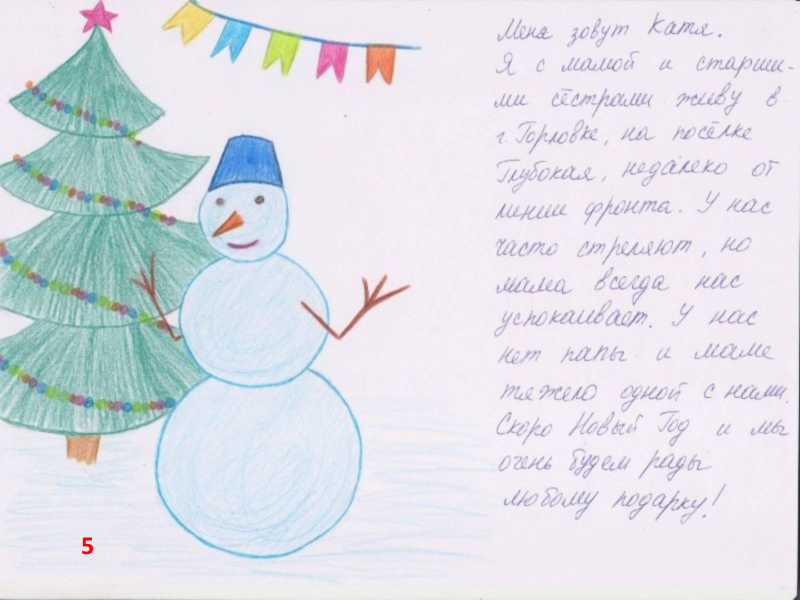 Меня зовут Катя.
Я с мамой и старши-
ми сёстрами живу в
г. Горловке, на посёлке
Глубокая, недалеко от
линии фронта. У нас
часто стреляют, но
мама всегда нас
успокаивает. У нас
нет папы и маме
тяжело одной с нами.
Скоро Новый Год и мы
очень будем рады
любому подарку!
5